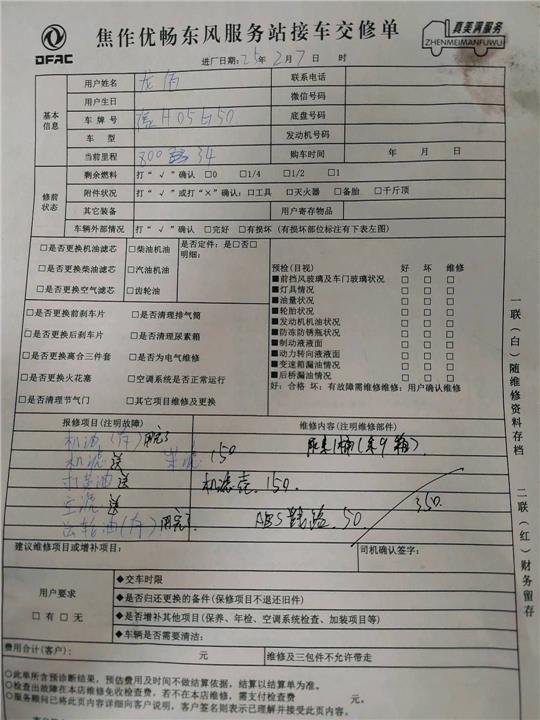 DFAC
焦作优畅东风服务站接车交修单
真美满服务
ZHENMEIMANFUWU
进厂日期:25年2月7日 时
基本信息
用户姓名 龙
联系电话
用户生日
微信号码
车牌号 H05 50
底盘号码
车型
发动机号码
当前里程 800 34
购车时间 年 月 日
修前状态
剩余燃料 打“√”确认 □0 □1/4 □1/2 □1
附件状况 打“√”或打“×”确认:□工具 □灭火器 □备胎 □千斤顶
其它装备
用户寄存物品
车辆外部情况 打“√”确认 □完好 □有损坏 (有损坏部位标注有下表左图)
□是否更换机油滤芯 □柴油机油 是否定件:是□否□
明细:
□是否更换柴油滤芯 □汽油机油
□是否更换空气滤芯 □齿轮油
预检(目视) 好 坏 维修
■前挡风玻璃及车门玻璃状况 □ □ □
■灯具情况 □ □ □
■油量状况 □ □ □
■轮胎状况 □ □ □
■发动机机油情况 □ □ □
■防冻防锈瓶状况 □ □ □
■制动液液面 □ □ □
■动力转向液液面 □ □ □
■变速箱漏油情况 □ □ □
■后桥漏油情况 □ □ □
好:合格 坏:有故障需维修维修:用户确认维修
□是否更换前刹车片 □是否清理排气筒
□是否更换后刹车片 □是否清理尿素箱
□是否更换离合三件套 □是否为电气维修
□是否更换火花塞 □空调系统是否正常运行
□是否清理节气门 □其它项目维修及更换
报修项目(注明故障)
维修内容(注明维修部件)
机油(有)用完了
尿素1桶(余9箱)
机滤 送 柴滤 150
送 机滤壳 150
送
350
齿轮油(有)用完了 ABS线路 50
建议维修项目或增补项目:
司机确认签字:
用户要求
□有□无
◆交车时限
◆是否归还更换的备件(保修项目不退还旧件)
◆是否增补其他项目(保养、年检、空调系统检查、加装项目等)
◆车辆是否需要清洁:
费用合计(客户): 元
维修及三包件不允许带走
○此单所含预诊断结果,预估费用及时间不做结算依据,结算以结算单为准。
○检查出故障在本店维修免收检查费,若不在本店维修,需支付检查费 元。
○服务顾问已将此页内容详细向客户说明,客户签名则表示已理解并接受此页内容。
一联(白)随维修资料存档
二联(红)财务留存